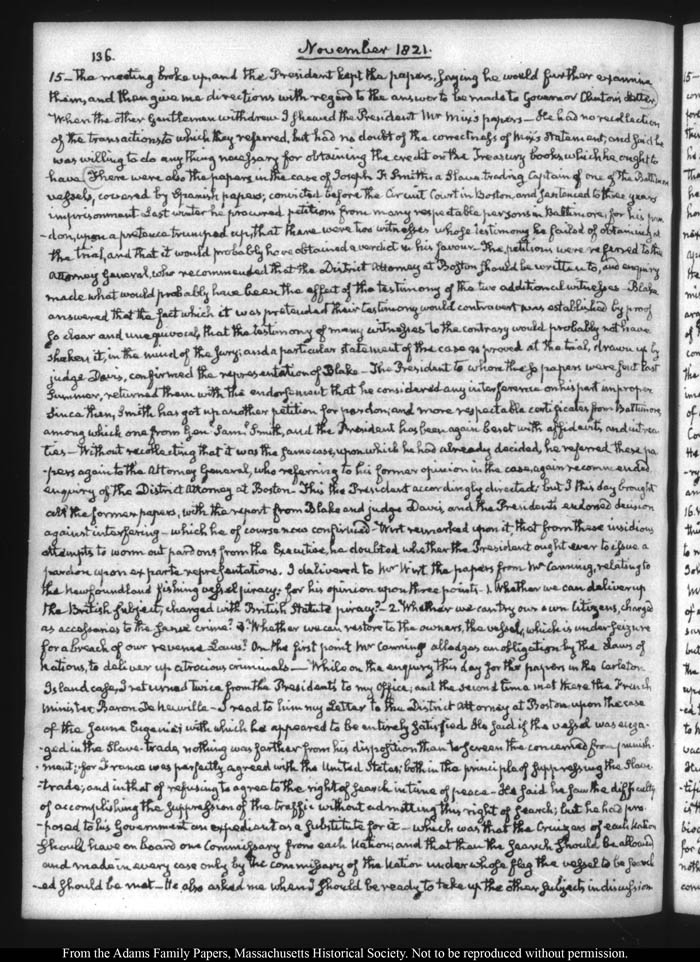 136.
November 1821.
15 – The meeting broke up, and the President kept the papers, saying he would further examine
them, and then give me directions with regard to the answer to be made to Governor Clinton's Letter
When the other Gentlemen withdrew I shewed the President Mr Mix's papers – He had no recollection
of the transactions to which they referred, but had no doubt of the correctness of Mix's Statement; and said he
was willing to do any thing necessary for obtaining the credit on the Treasury books which he ought to
have. There were also the papers in the case of Joseph F. Smith, a Slave trading Captain of one of the Baltimore
vessels, covered by Spanish papers; convicted before the Circuit Court in Boston and sentenced to three years
imprisonment Last winter he procured petitions from many respectable persons in Baltimore, for his par
-don, upon a pretence trumped up, that there were two witnesses whose testimony he failed of obtaining at
the trial, and that it would probably have obtained a verdict in his favour. The petitions were referred to the
Attorney General, who recommended that the District Attorney at Boston should be written to, and enquiry
made what would probably have been the effect of the testimony of the two additional witnesses – Blake
answered that the fact which it was pretended their testimony would controvert was established by proof
so clear and unequivocal, that the testimony of many witnesses to the contrary would probably not have
shaken it, in the mind of the Jury; and a particular statement of the case as proved at the trial, drawn up by
judge Davis, confirmed the representation of Blake – The President to whom these papers were sent last
Summer, returned them with the endorsement that he considered any interference on his part improper
Since then, Smith has got up another petition for pardon; and more respectable certificates from Baltimore,
among which one from Genl. Saml. Smith, and the President has been again beset with affidavits and intrea
ties – Without recollecting that it was the same case, upon which he had already decided, he referred these pa
-pers again to the Attorney General, who referring to his former opinion in the case, again recommended
enquiry of the District Attorney at Boston. This the President accordingly directed; but I this day brought
all the former papers, with the report from Blake and judge Davis, and the President's endorsed decision
against interfering – which he of course now confirmed – Wirt remarked upon it, that from these insidious
attempts to worm out pardons from the Executive, he doubted whether the President ought ever to issue a
pardon upon ex parte representations. I delivered to Mr Wirt the papers from Mr Canning, relating to
the Newfoundland fishing vessel piracy: for his opinion upon three points. 1. Whether we can deliver up
the British subject, charged with British Statute piracy? – 2. Whether we can try our own Citizens, charged
as accessaries to the same crime? 3. Whether we can restore to the owners, the vessel, which is under seizure
for a breach of our revenue Laws? On the first point Mr Canning alledges an obligation by the Laws of
Nations, to deliver up atrocious criminals – While on the enquiry this day for the papers in the Carleton
Island case, I returned twice from the Presidents to my Office; and the second time met there the French
Minister Baron De Neuville – I read to him my Letter to the District Attorney at Boston upon the case
of the Jeune Eugenie; with which he appeared to be entirely satisfied He said if the vessel was enga-
-ged in the Slave-trade, nothing was farther from his disposition than to screen the concerned from punish-
-ment; for France was perfectly agreed with the United States; both in the principle of suppressing the Slave-
-trade; and in that of refusing to agree to the right of search in time of peace – He said he saw the difficulty
of accomplishing the suppression of the traffic without admitting this right of search; but he had pro-
-posed to his Government an expedient as a substitute for it – which was that the Cruizers of each Nation
should have on board one Commissary from each Nation; and that then the search should be allowed
and made in every case only by the commissary of the Nation under whose flag the vessel to be search
-ed should be met – He also asked me when I should be ready to take up the other subjects in discussion
From the Adams Family Papers, Massachusetts Historical Society. Not to be reproduced without permission.